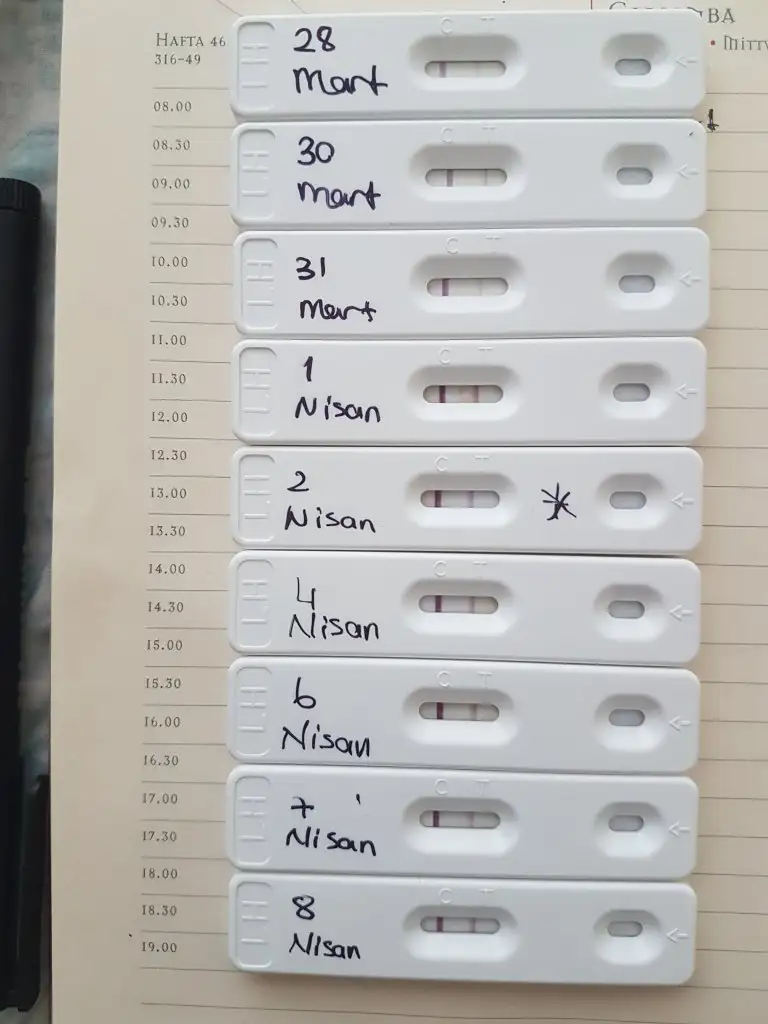 BA
HAFTA 46
316-49
• MITTW
08.00
08.30
09.00
09.30
10.00
10.30
11.00
11.30
12.00
12.30
13.00
13.30
14.00
14.30
15.00
15.30
16.00
16.30
17.00
17.30
18.00
18.30
19.00
LH
28
Mart
C T
LH
30
Mart
C T
LH
31
Mart
C T
LH
1
Nisan
C T
LH
2
Nisan
C T
LH
4
Nisan
C T
LH
6
Nisan
C T
LH
7
Nisan
C T
LH
8
Nisan
C T